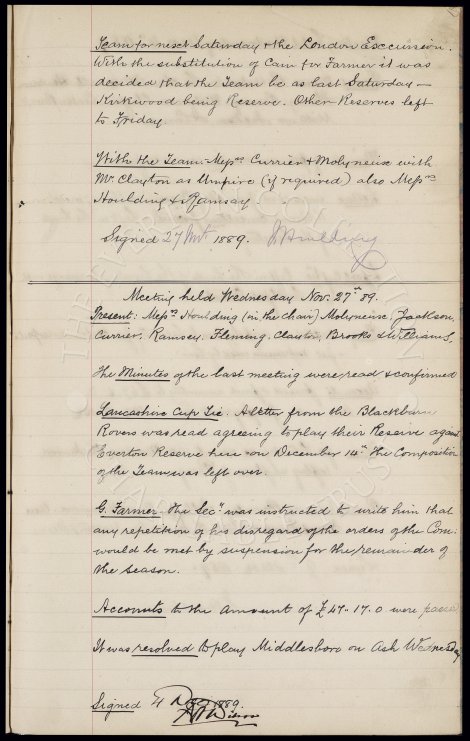 Team for next Saturday & the London Excursion.
With the substitution of Cain for Farmer it was
decided that the Team be as last Saturday –
Kirkwood being Reserve. Other Reserves left
to Friday.
With the Team:- Messrs Currier & Molyneux with
Mr. Clayton as Umpire (if required) also Messrs
Houlding & Ramsay
Signed 27 Nov 1889. J Houlding
Meeting held Wednesday Nov. 27th 89.
Present: Messrs Houlding (in the chair) Molyneux, Jackson,
Currier, Ramsey, Fleming, Clayton, Brooks & Williams,
The Minutes of the last meeting were read & confirmed
Lancashire Cup Tie. A letter from the Blackburn
Rovers was read agreeing to play their Reserve against
Everton Reserve here on December 14th The Composition
of the Team was left over.
G. Farmer. The Secy was instructed to write him that
any repetition of his disregard of the orders of the Com:
would be met by suspension for the remainder of
the season.
Accounts to the amount of £47-17.0 were passed
It was resolved to play Middlesboro on Ash Wednesday
Signed 4 Dec 1889.